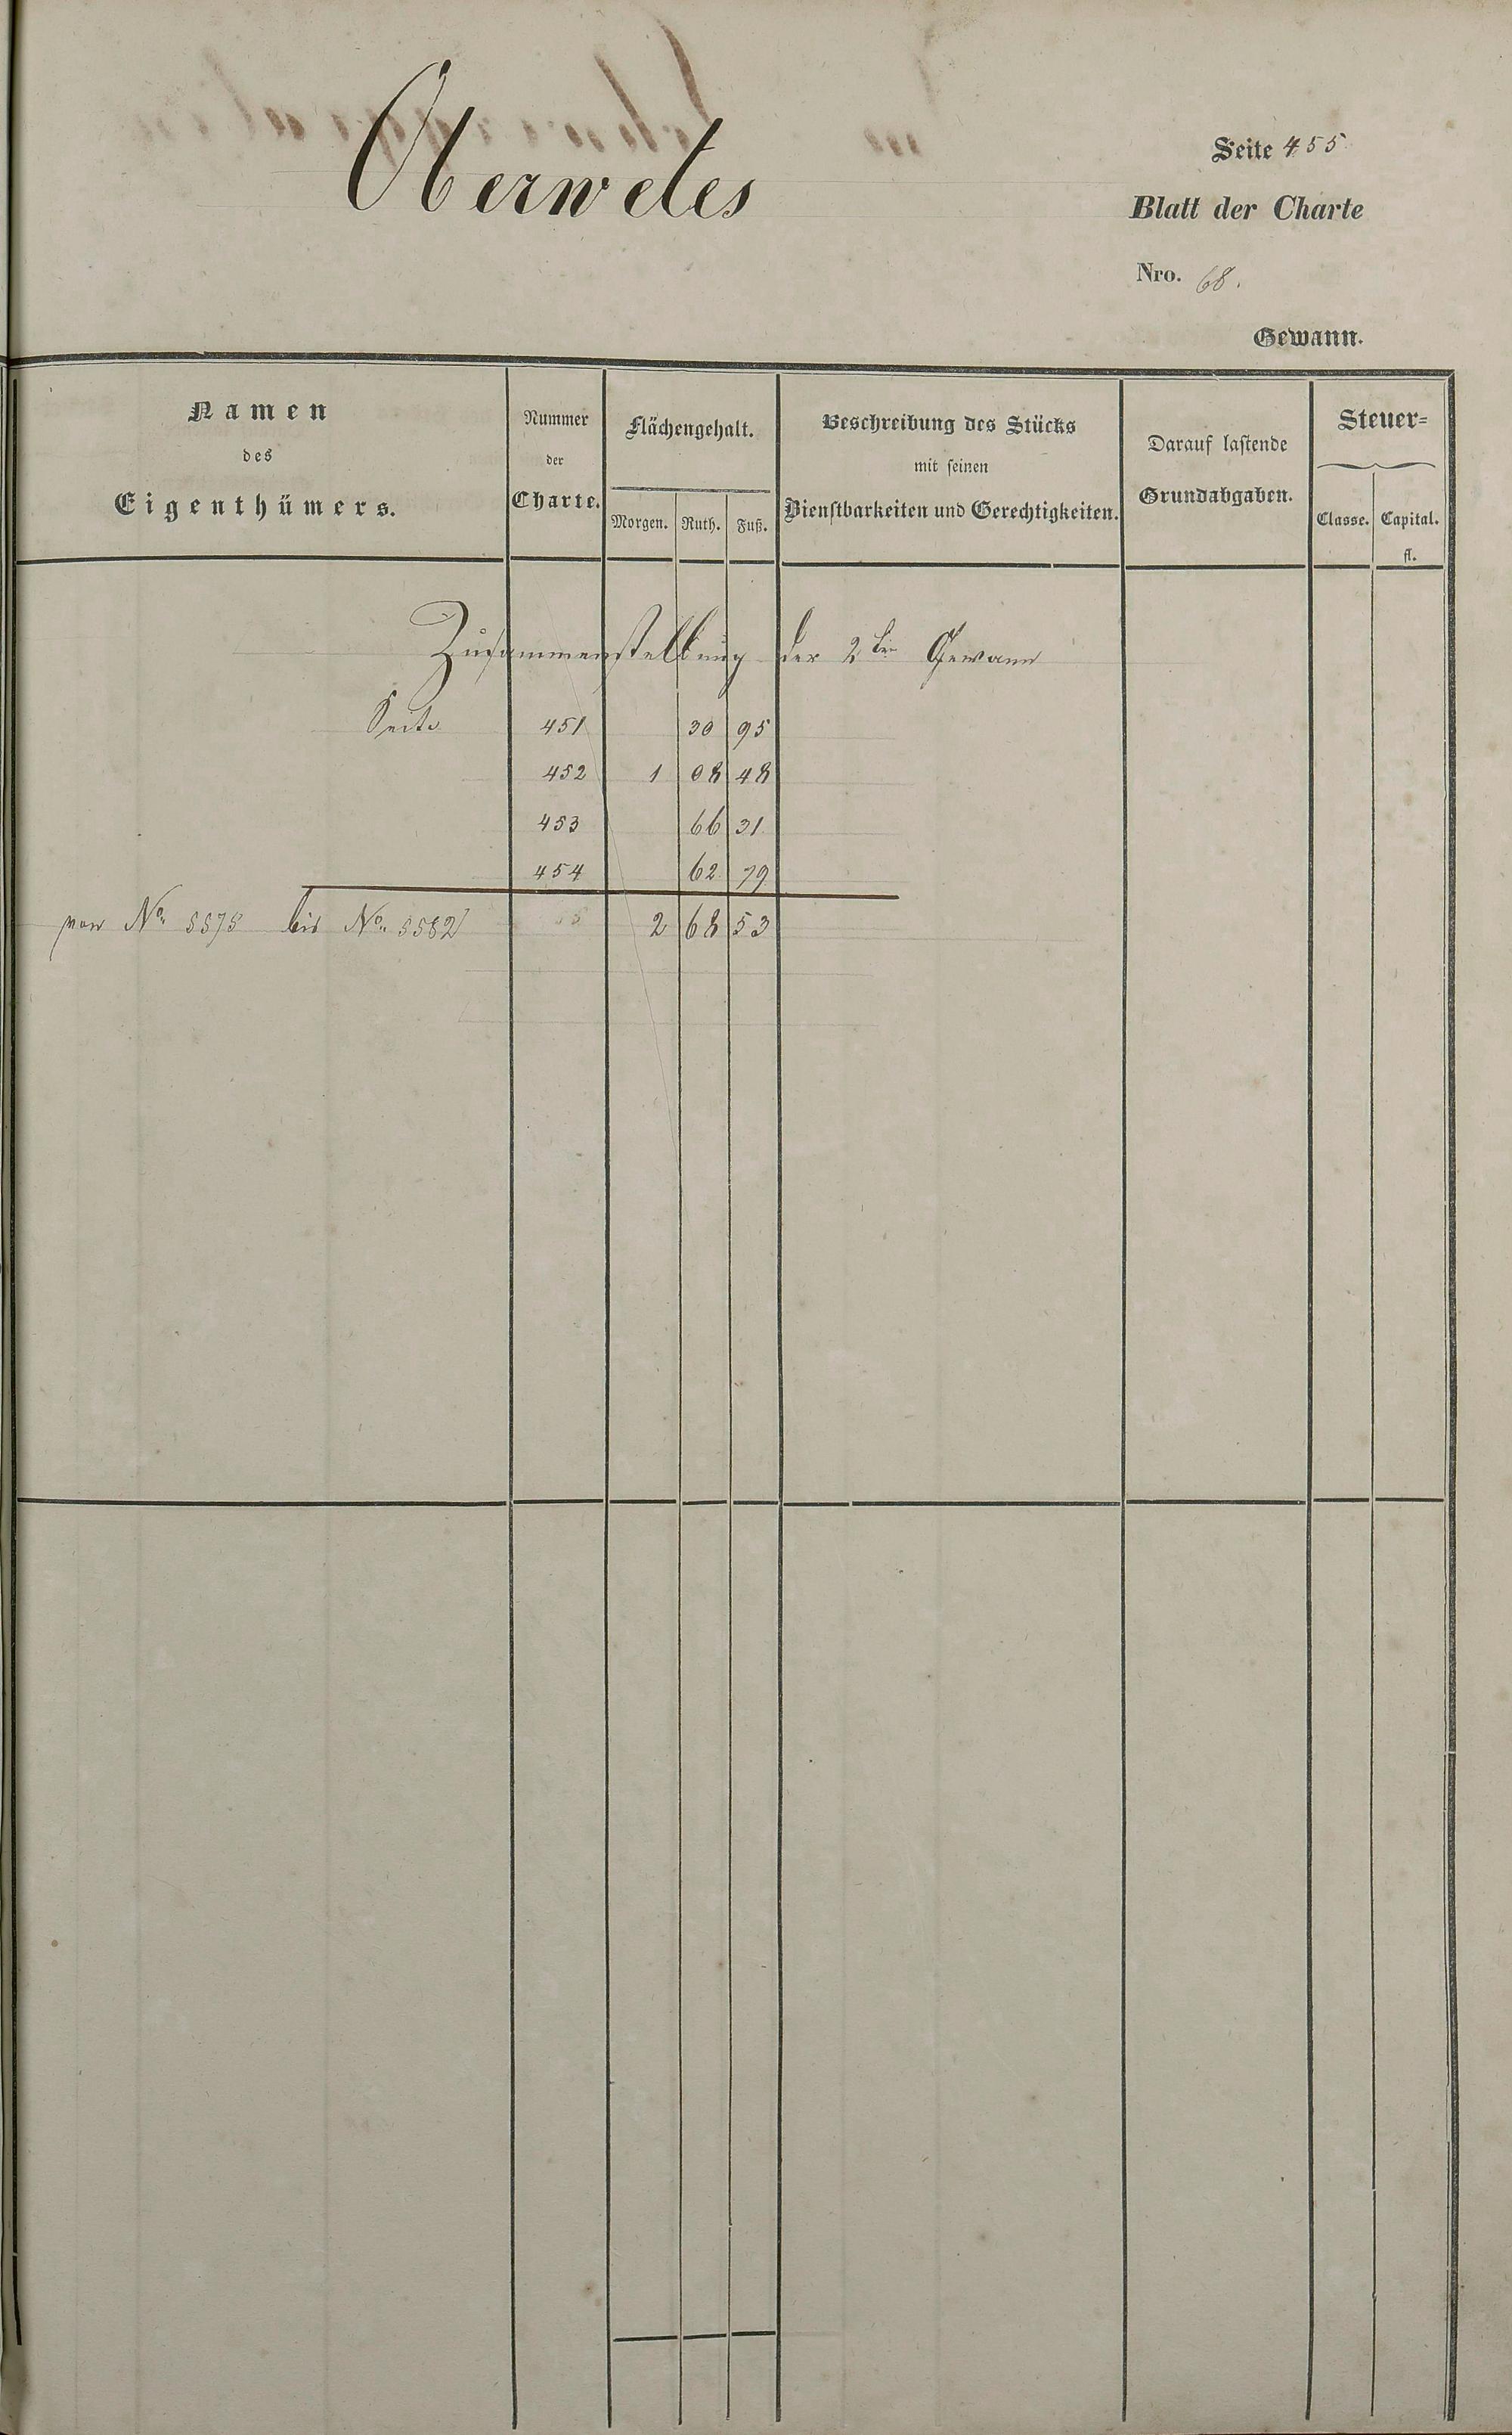 Oberwetes
Seite 455
Blatt der Charte
Nro. 68.
Gewann.
Namen
des
Eigenthümers.
Nummer
der
Charte.
Flächengehalt.
Morgen. Ruth. Fuß.
Beschreibung des Stücks
mit seinen
Dienstbarkeiten und Gerechtigkeiten.
Darauf lastende
Grundabgaben.
Steuer=
Classe. Capital.
fl.
Zusammenstellung der 2ten Gewann
Seite 451 30 95
452 1 08 48
453 66 31
454 62 79
von No. 5575 bis No. 5582 2 68 53